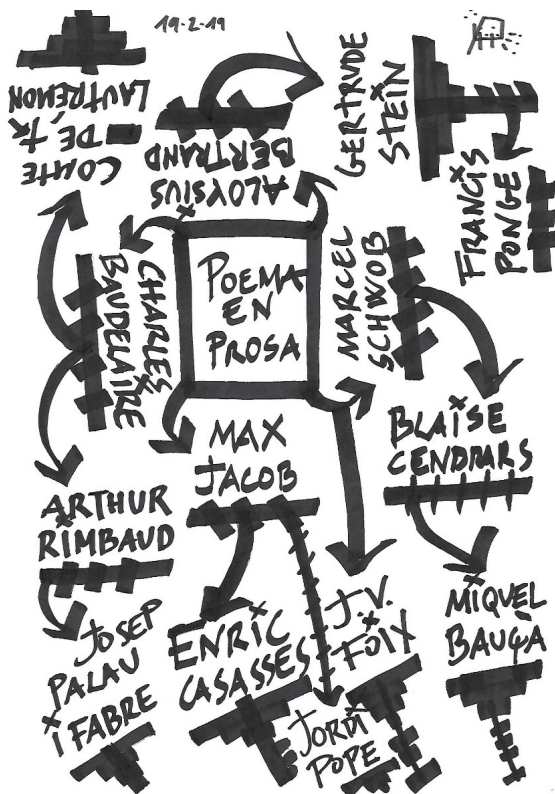 19-2-19
COMTE
DE
LAUTREMON
ALOYSIUS
BERTRAND
GERTRUDE
STEIN
FRANCIS
PONGE
CHARLES
BAUDELAIRE
POEMA
EN
PROSA
MARCEL
SCHWOB
MAX
JACOB
BLAISE
CENDRARS
ARTHUR
RIMBAUD
JOSEP
PALAU
I FABRE
ENRIC
CASASSES
J.V.
FOIX
JORDI
POPE
MIQUEL
BAUÇÀ